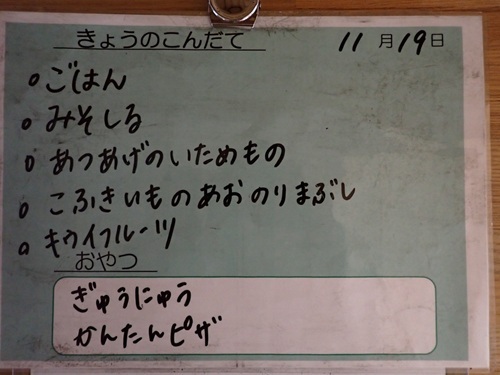 きょうのこんだて 11月19日
ごはん
みそしる
あつあげのいためもの
こふきいものあおのりまぶし
キウイフルーツ
おやつ
ぎゅうにゅう
かんたんピザ